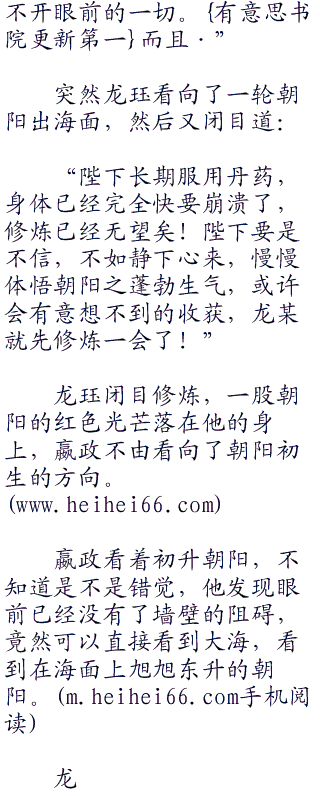 不开眼前的一切。{有意思书
院更新第一}而且·”
突然龙珏看向了一轮朝
阳出海面，然后又闭目道：
“陛下长期服用丹药，
身体已经完全快要崩溃了，
修炼已经无望矣！陛下要是
不信，不如静下心来，慢慢
体悟朝阳之蓬勃生气，或许
会有意想不到的收获，龙某
就先修炼一会了！”
龙珏闭目修炼，一股朝
阳的红色光芒落在他的身
上，嬴政不由看向了朝阳初
生的方向。
(www.heihei66.com)
嬴政看着初升朝阳，不
知道是不是错觉，他发现眼
前已经没有了墙壁的阻碍，
竟然可以直接看到大海，看
到在海面上旭旭东升的朝
阳。(m.heihei66.com手机阅
读)
龙